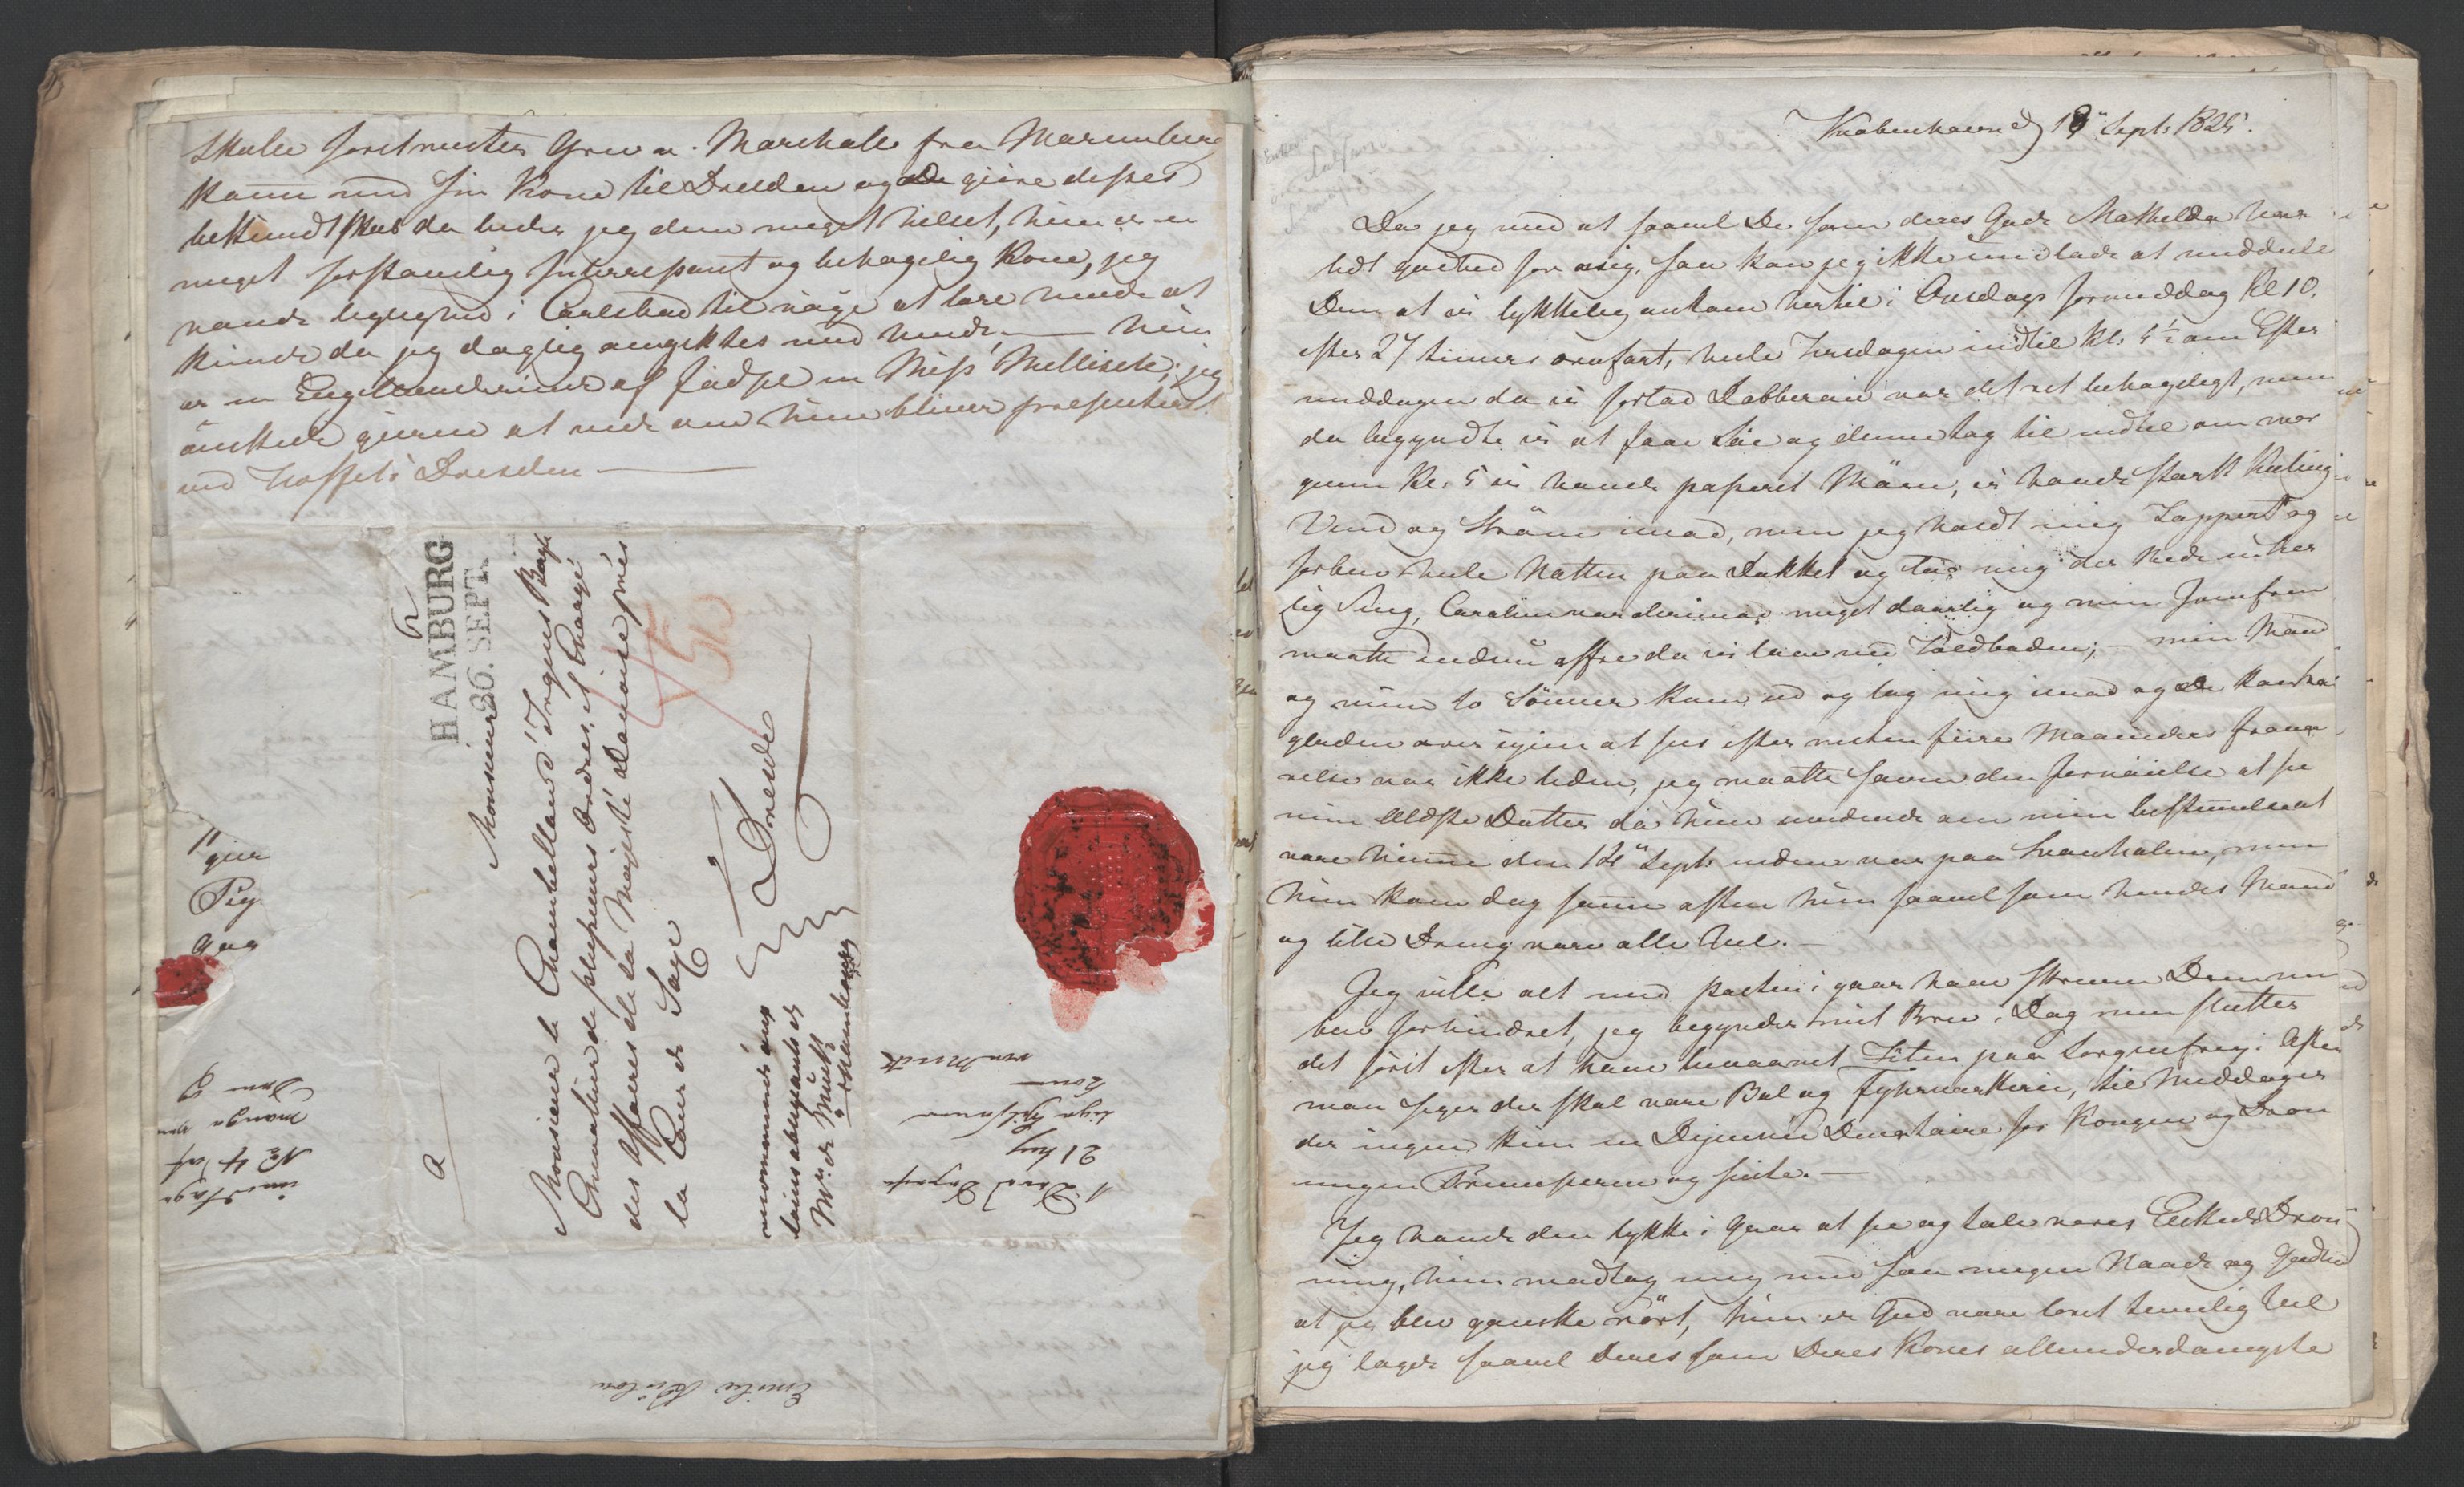 Skulle forstmester Grev v. Marchall fra Marienberg
komme med sin Kone til Dresden og gjøre disses
bekiendtskab da beder jeg dem meget hilset, hun er en
meget forstandig Interressant og behagelig Kone, jeg
havde leylighed i Carlsbad til nöge at lære hende at
kiende da jeg daglig omgikkes med hende, — hun
er en Engellænderinde af födsel en Miss Mellisch; jeg
önskede gierne at vide om hun bliver præsenteret
ved Hoffet i Dresden —
HAMBURG
26. SEPT.
Monsieur
Monsieur le Chambelland d'Irgens Bergh
Commandeur de plusieurs Ordres, et Chargé
des affaires de sa Majesté Danoise près
la Cour de Saxe
à
Dresde
Mr. de Münk
à Hambourg
gier
Sig
gaa
No 4 af
mange
Dem
21
Emilie
Kiöbenhavn d 18 Sept. 1825.
Da jeg ved at saavel De som deres gode Mathilde har
lidt godhed for mig, saa kan jeg ikke undlade at meddele
Dem at vi lykkelig ankom hertil i Onsdags formiddag Kl 10,
efter 27 timers överfart, hele Tirsdagen indtil Kl. 5½ om Efter
middagen da vi forlod Dobberan var det ret behageligt, men
da begyndte vi at faae Söe og denne tog til indtil om mor
genen Kl. 5 vi havde passeret Möen, vi havde stærk Kuling
Vind og Ström imod, men jeg holdt mig Tappert og
forblev hele Natten paa Dækket og tös mig der rede ynker
lig Sing, Caroline var derimod meget daarlig og min Jomfru
maatte endnu offre da vi laae ved Toldboden; — min Mand
og mine to Sönner kom ud og tog mig imod og De kan troe
glæden over igien at sees efter næsten fiire Maaneders fravæ
relse var ikke liden, jeg maatte savne den fornöielse at see
min ældste Datter da hun uvidende om min bestemmelse at
være hiemme den 14 Sept. endnu var paa Svanholm, men
hun kom dog samme aften hun saavel som hendes Mand
og lille Dreng vare alle vel. —
Jeg ville alt med posten i gaar have skreven Dem men
blev forhindret, jeg begynder mit Brev i Dag men slutter
det först efter at have bivaanet Féten paa Sorgenfrey i Aften
man siger der skal være Bal og Fyhrværkerie, til Middag er
der ingen kun en Dejeuné Dinatoire for Kongen og Dron
ningen Prinsesserne og suite. —
Jeg havde den lykke i Gaar at see og tale vores Elskede Dron
ning, hun modtog mig med saa megen Naade og Godhed
at jeg blev ganske rört, hun er Gud være lovet temmelig vel
jeg lagde saavel Deres som Deres Kones allerunderdanigste